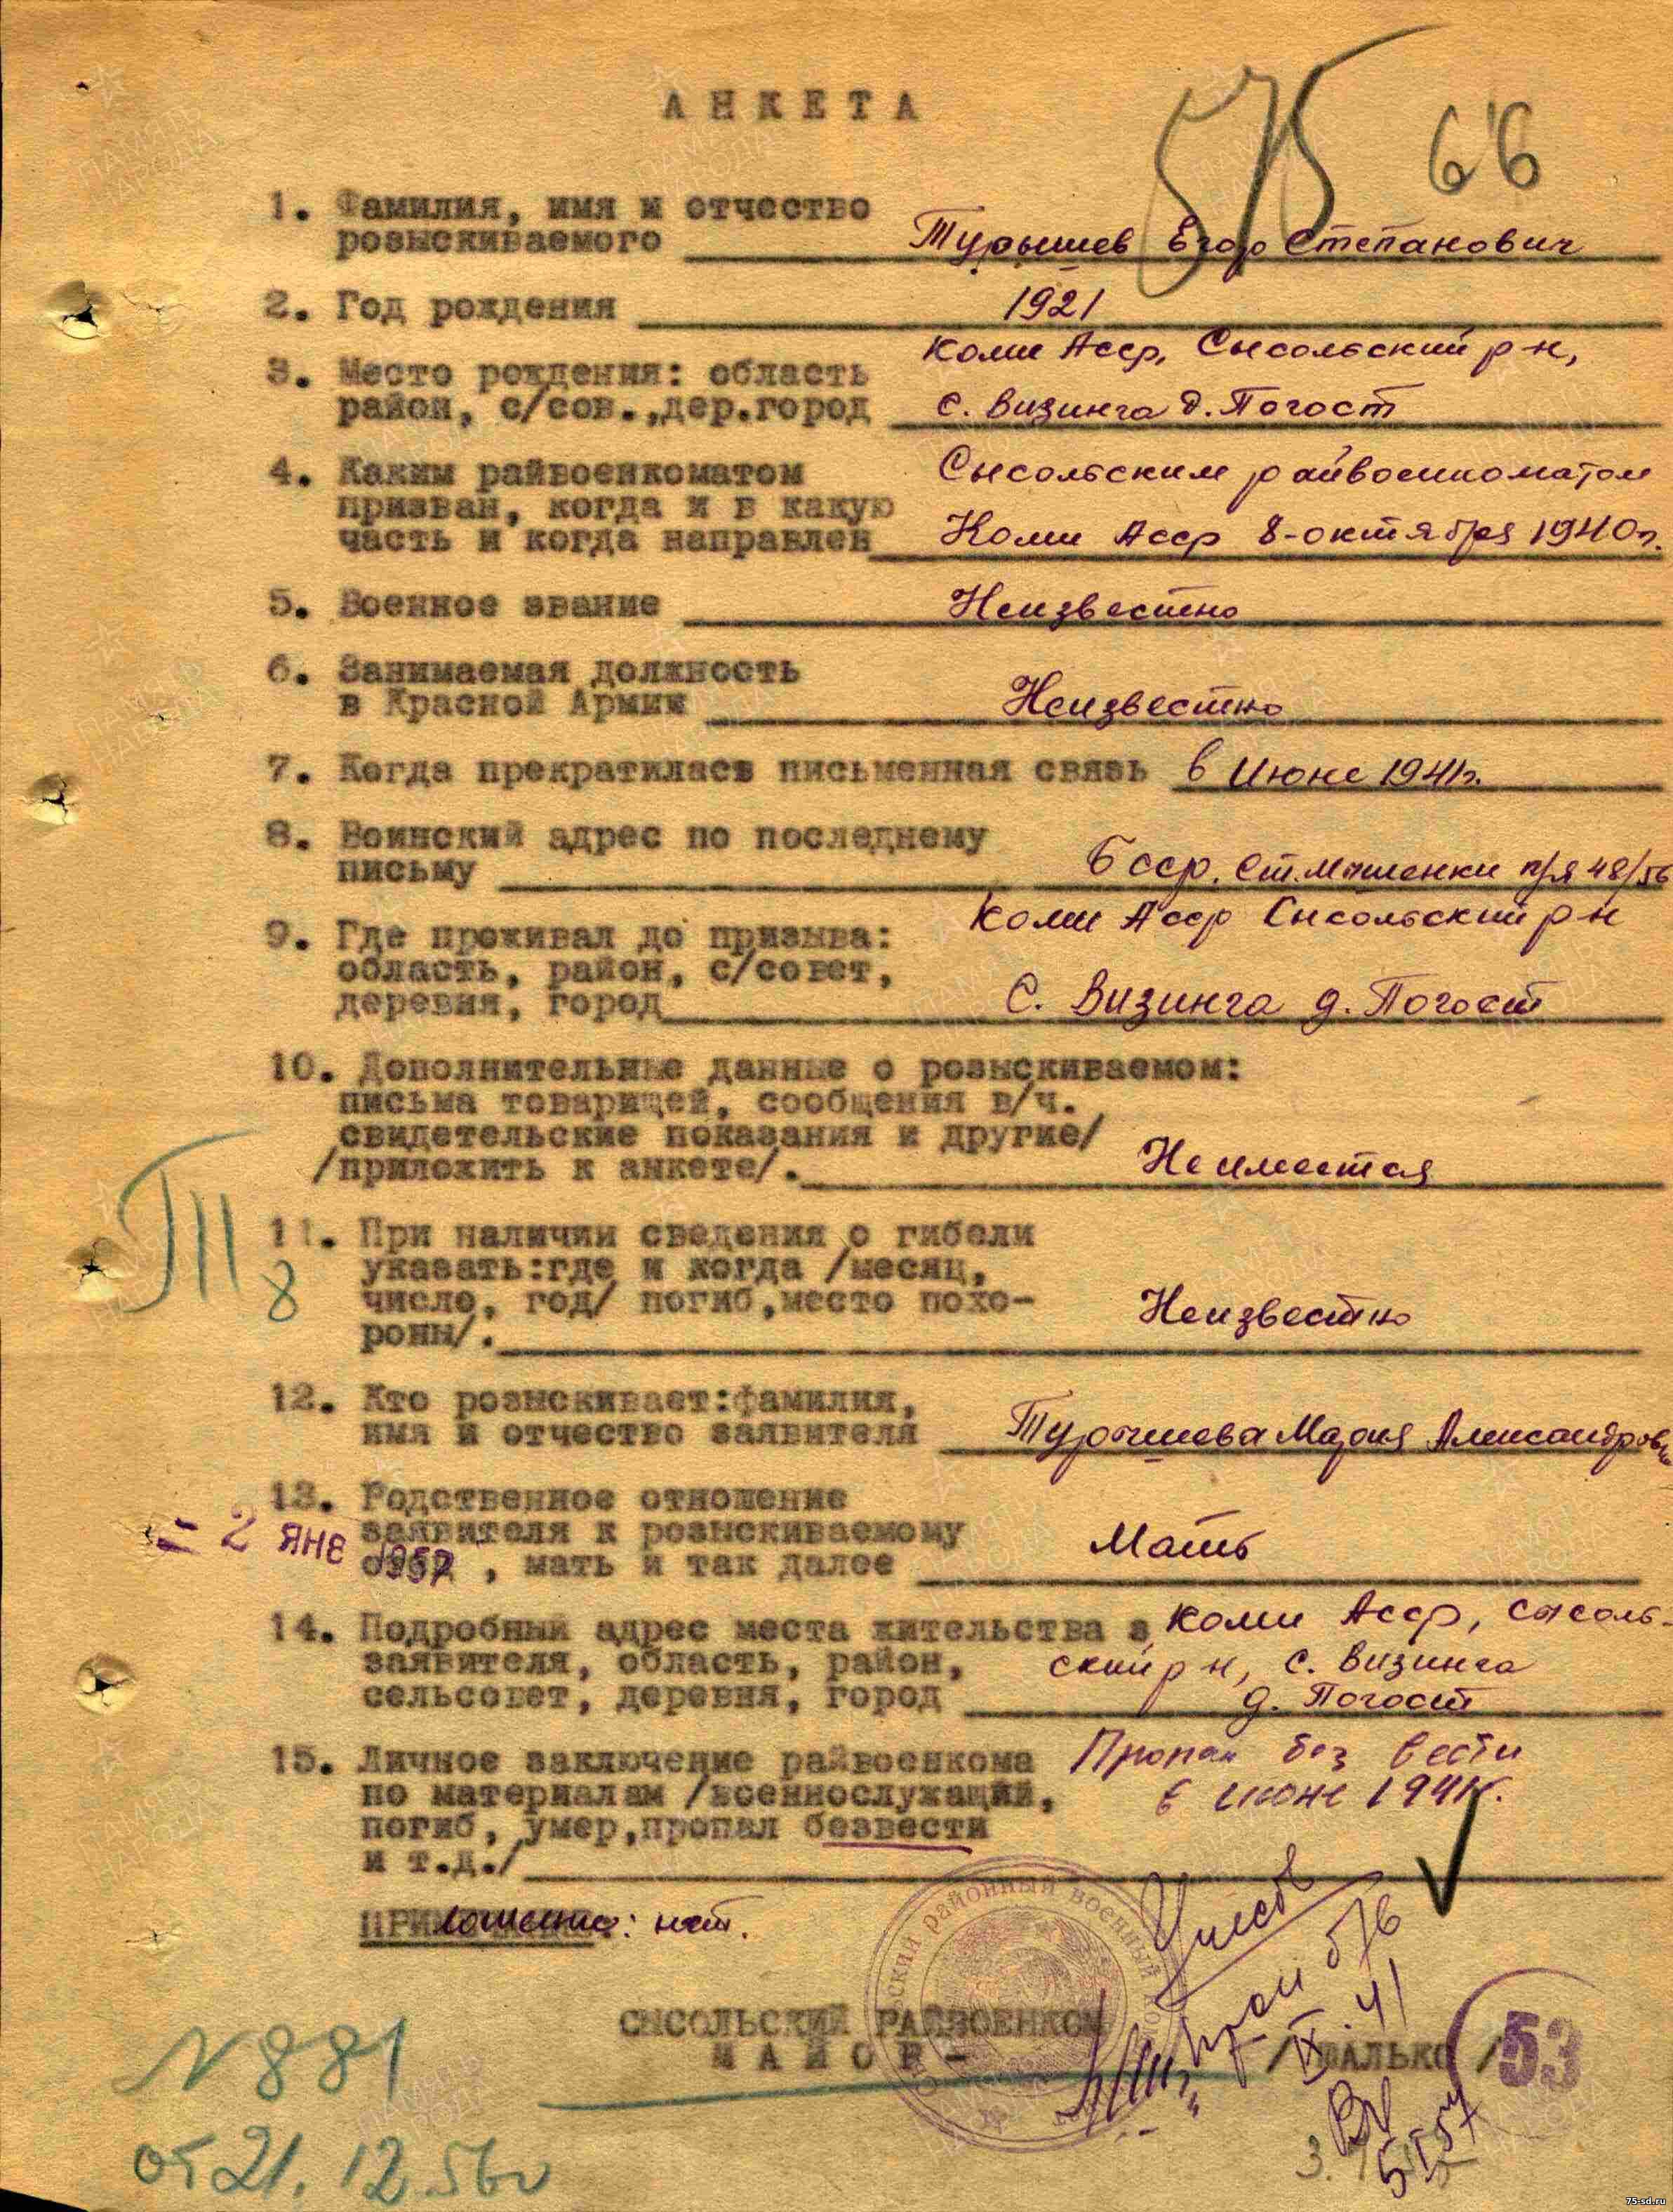 АНКЕТА
575 66
1. Фамилия, имя и отчество
розыскиваемого Турышев Егор Степанович
2. Год рождения 1921
Коми Асср, Сысольский р-н,
3. Место рождения: область
район, с/сов.,дер.город с. Визинга д. Погост
4. Каким райвоенкоматом Сысольским райвоенкоматом
призван, когда и в какую
часть и когда направлен Коми Асср 8-октября 1940г.
5. Военное звание Неизвестно
6. Занимаемая должность
в Красной Армии Неизвестно
7. Когда прекратилась письменная связь в Июне 1941г.
8. Воинский адрес по последнему
письму Бсср. ст. п/я 48/56
Коми Асср Сысольский р-н
9. Где проживал до призыва:
область, район, с/совет,
деревня, город С. Визинга д. Погост
10. Дополнительные данные о розыскиваемом:
письма товарищей, сообщения в/ч.
свидетельские показания и другие/
/приложить к анкете/. Не имеется
11. При наличии сведения о гибели
8
указать:где и когда /месяц,
число, год/ погиб,место похо-
роны/. Неизвестно
12. Кто розыскивает:фамилия,
имя и отчество заявителя Турышева Мария Александровн
13. Родственное отношение
заявителя к розыскиваемому
= 2 ЯНЕ 1957
, мать и так далее Мать
14. Подробный адрес места жительства Коми Асср, Сысоль-
заявителя, область, район, ский р-н, с. Визинга
сельсовет, деревня, город д. Погост
15. Личное заключение райвоенкома Пропал без вести
по материалам /военнослужащий, в июне 1941г.
погиб, умер,пропал безвести
и т.д./
Приложение: нет.
районный военный
СЫСОЛЬСКИЙ РАЙВОЕНКОМ
МАЙОР - / ФАЛЬКО /
проп б/в
IX.41
53
5.I.57
N 881
от 21.12.56г
ПАМЯТЬ НАРОДА
75-sd.ru